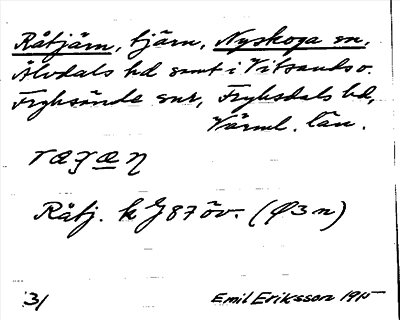 Råtjärn, tjärn, Nyskoga sn,
Älvdals hd samt i Vitsands o.
Fryksände snr, Fryksdals hd,
Värml. län.
Råtj. k 87 öv. (Ø3n)
31 Emil Eriksson 1915